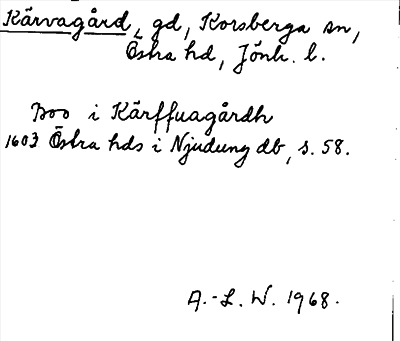 Kärvagård, gd, Korsberga sn,
Östra hd, Jönk. l.
Boo i Kärffuagårdh
1603 Östra hds i Njudung db, s. 58.
A.-L. W. 1968.